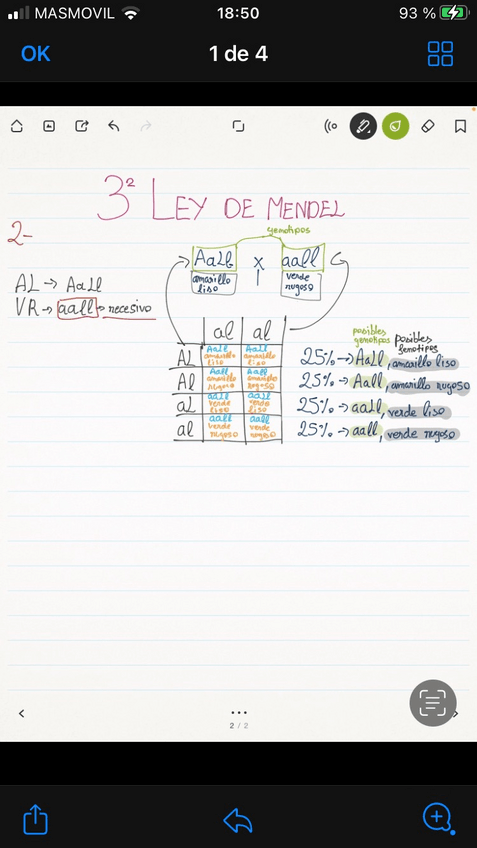 MASMOVIL 18:50 93 %
OK 1 de 4
3ª LEY DE MENDEL
2-
genotipos
AaLl x aall
amarillo liso verde rugoso
AL → AaLl
VR → aall → recesivo
al al
AL AaLl amarillo liso AaLl amarillo liso
Al Aall amarillo rugoso Aall amarillo rugoso
aL aaLl verde liso aaLl verde liso
al aall verde rugoso aall verde rugoso
posibles genotipos posibles fenotipos
25% → AaLl, amarillo liso
25% → Aall, amarillo rugoso
25% → aaLl, verde liso
25% → aall, verde rugoso
2 / 2